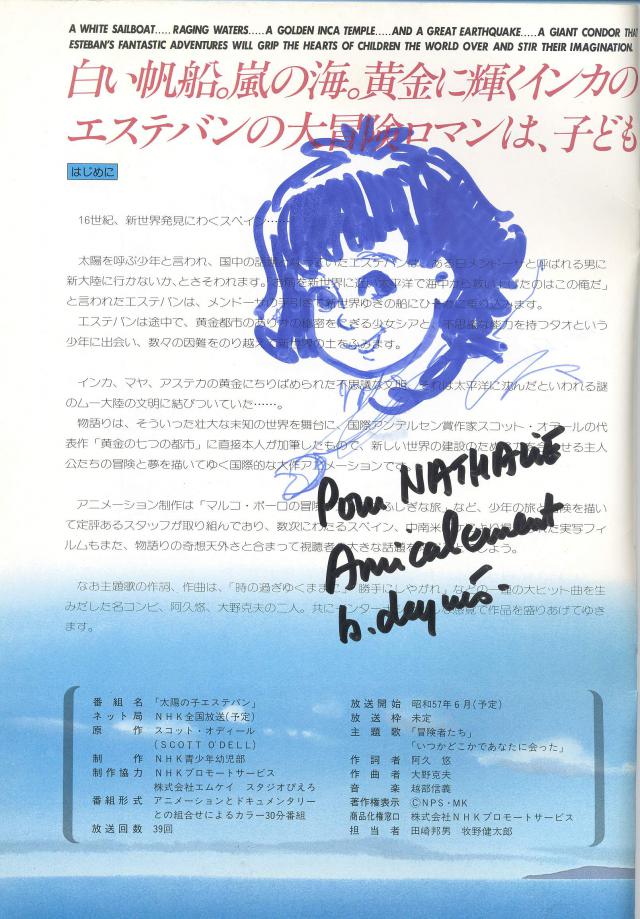 A WHITE SAILBOAT.....RAGING WATERS.....A GOLDEN INCA TEMPLE.....AND A GREAT EARTHQUAKE.....A GIANT CONDOR
ESTEBAN'S FANTASTIC ADVENTURES WILL GRIP THE HEARTS OF CHILDREN THE WORLD OVER AND STIR THEIR IMAGINATION.
白い帆船。嵐の海。黄金に輝くインカの
エステバンの大冒険ロマンは、子ども
はじめに
16世紀、新世界発見にわくスペイン……
太陽を呼ぶ少年と言われ、国中の話題 エステバンは、ある日メンドーサと呼ばれる男に
新大陸に行かないか、とさそわれます。 太平洋で海中から救い のはこの俺だ」
と言われたエステバンは、メンドーサの手引きで新世界ゆきの船にひそかに乗り込みます。
エステバンは途中で、黄金都市のありかの秘密を にぎる少女シアと、不思議な能力を持つタオという
少年に出会い、数々の困難をのり越えて新世界の土をふみます。
インカ、マヤ、アステカの黄金にちりばめられた不思議な文明。それは太平洋に沈んだといわれる謎
のムー大陸の文明に結びついていた……。
物語りは、そういった壮大な未知の世界を舞台に、国際アンデルセン賞作家スコット・オデールの代
表作「黄金の七つの都市」に直接本人が加筆したもので、新しい世界の建設のため 力を合せる主人
公たちの冒険と夢を描いてゆく国際的な大作アニメーションで
アニメーション制作は「マルコ・ポーロの冒険 ふしぎな旅」など、少年の旅と冒険を描い
て定評あるスタッフが取り組んでおり、数次にわたるスペイン、中南米 た実写フィ
ルムもまた、物語りの奇想天外さと合まって視聴者 大きな話題を しょう。
なお主題歌の作詞、作曲は、「時の過ぎゆくままに」「勝手にしやがれ」などの一連の大ヒット曲を生
みだした名コンビ、阿久悠、大野克夫の二人。共にインターナショナルな感覚で作品を盛りあげてゆき
ます。
Pour NATHALIE
Amicalement
b. deyriès.
番組名 「太陽の子エステバン」
ネット局 NHK全国放送(予定)
原作 スコット・オディール
(SCOTT O'DELL)
制作 NHK青少年幼児部
制作協力 NHKプロモートサービス
株式会社エムケイ スタジオぴえろ
番組形式 アニメーションとドキュメンタリー
との組合せによるカラー30分番組
放送回数 39回
放送開始 昭和57年6月(予定)
放送枠 未定
主題歌 「冒険者たち」
「いつかどこかであなたに会った」
作詞者 阿久 悠
作曲者 大野克夫
音楽 越部信義
著作権表示 ©NPS・MK
商品化権窓口 株式会社NHKプロモートサービス
担当者 田崎邦男 牧野健太郎